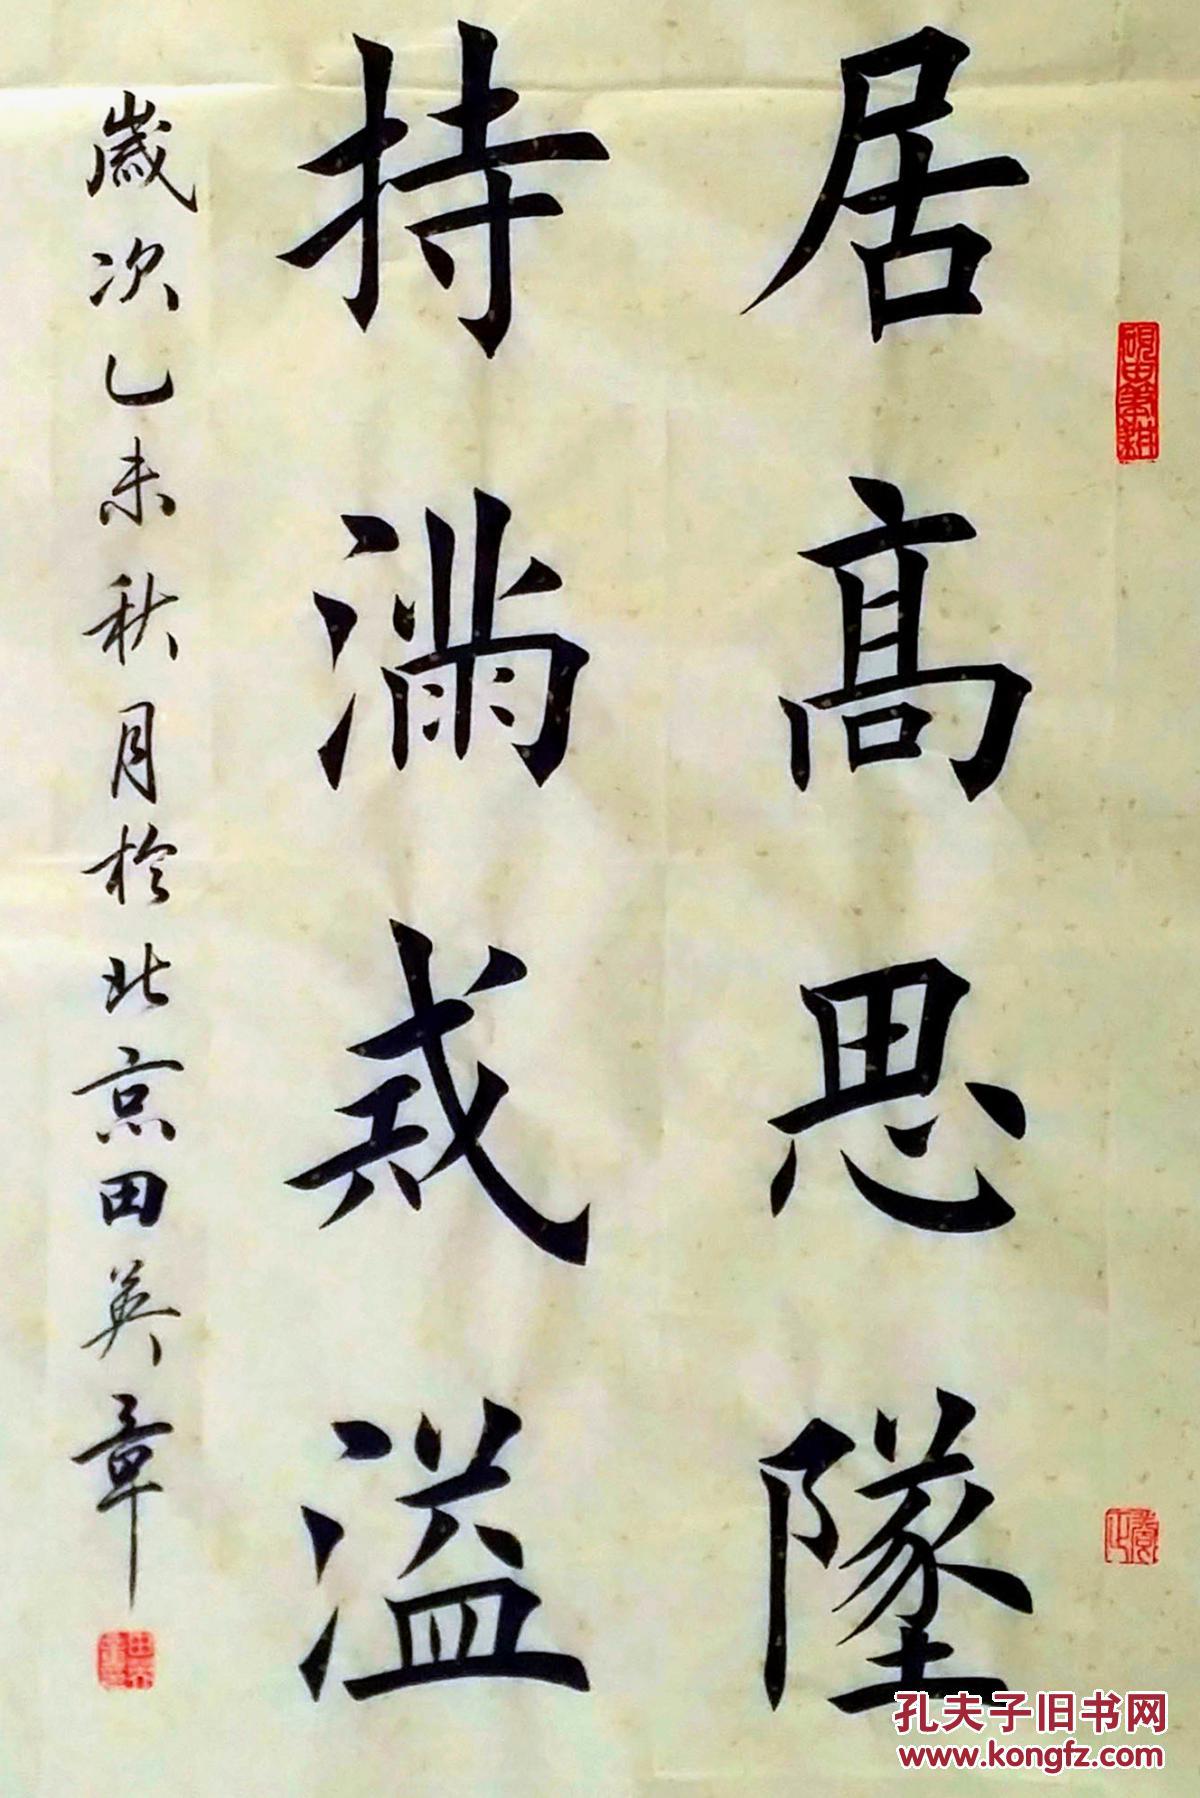 居高思墜
持滿戒溢
歲次乙未秋月於北京田英章
孔夫子旧书网
www.kongfz.com